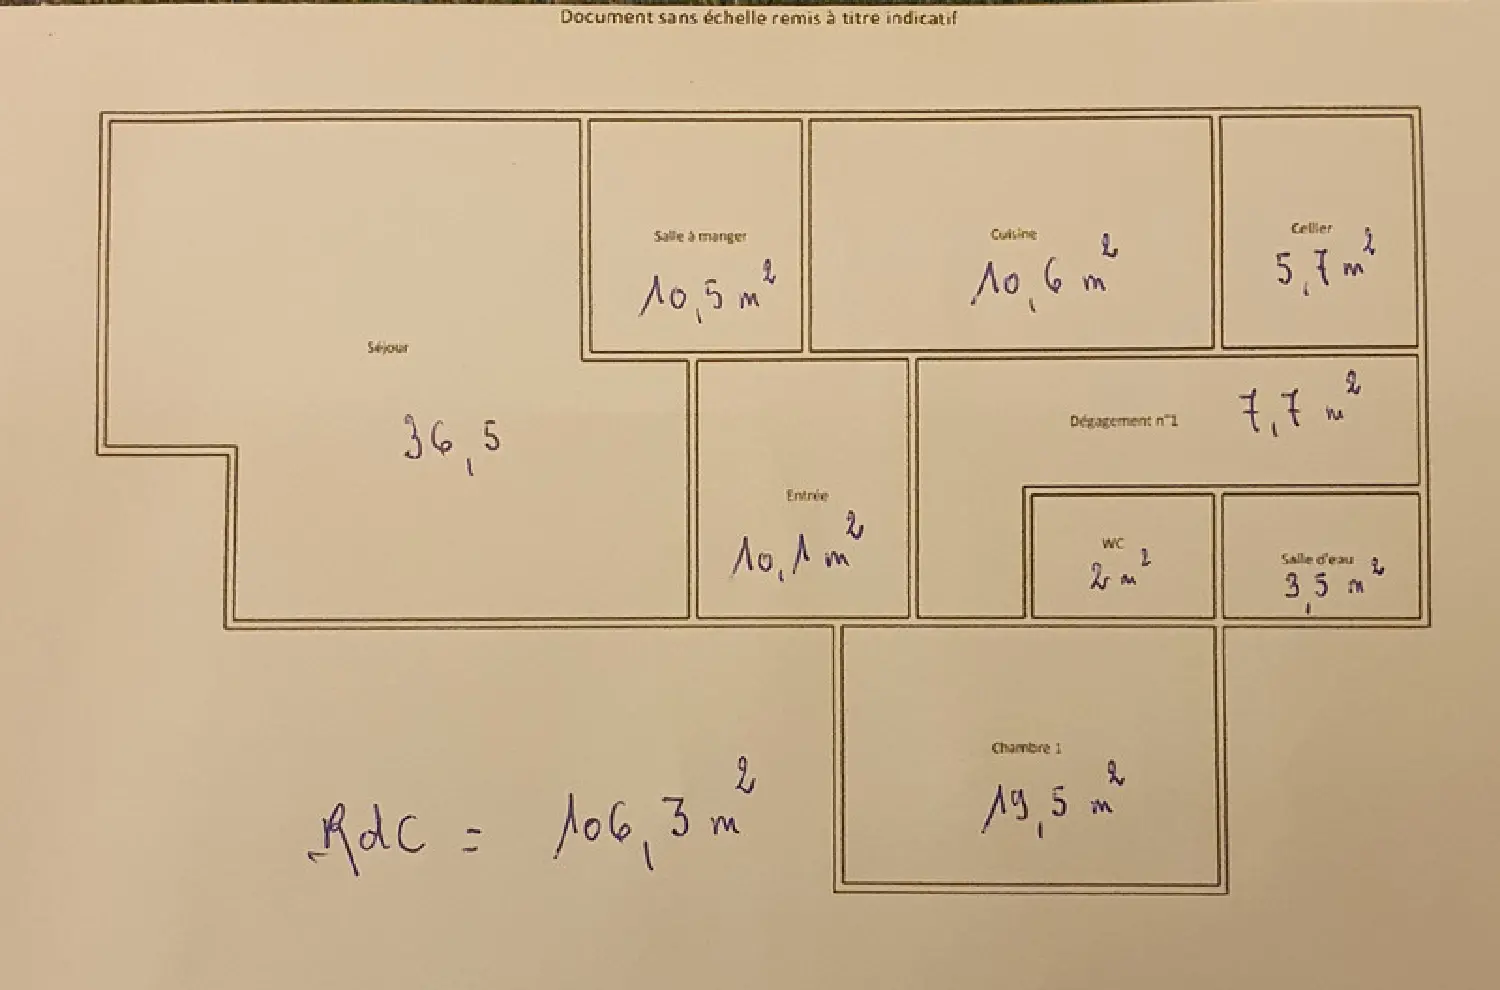 Document sans échelle remis à titre indicatif
Salle à manger
10,5 m²
Cuisine
10,6 m²
Cellier
5,7 m²
Séjour
36,5
Dégagement n°1
7,7 m²
Entrée
10,1 m²
WC
2 m²
Salle d'eau
3,5 m²
Chambre 1
19,5 m²
RdC = 106,3 m²